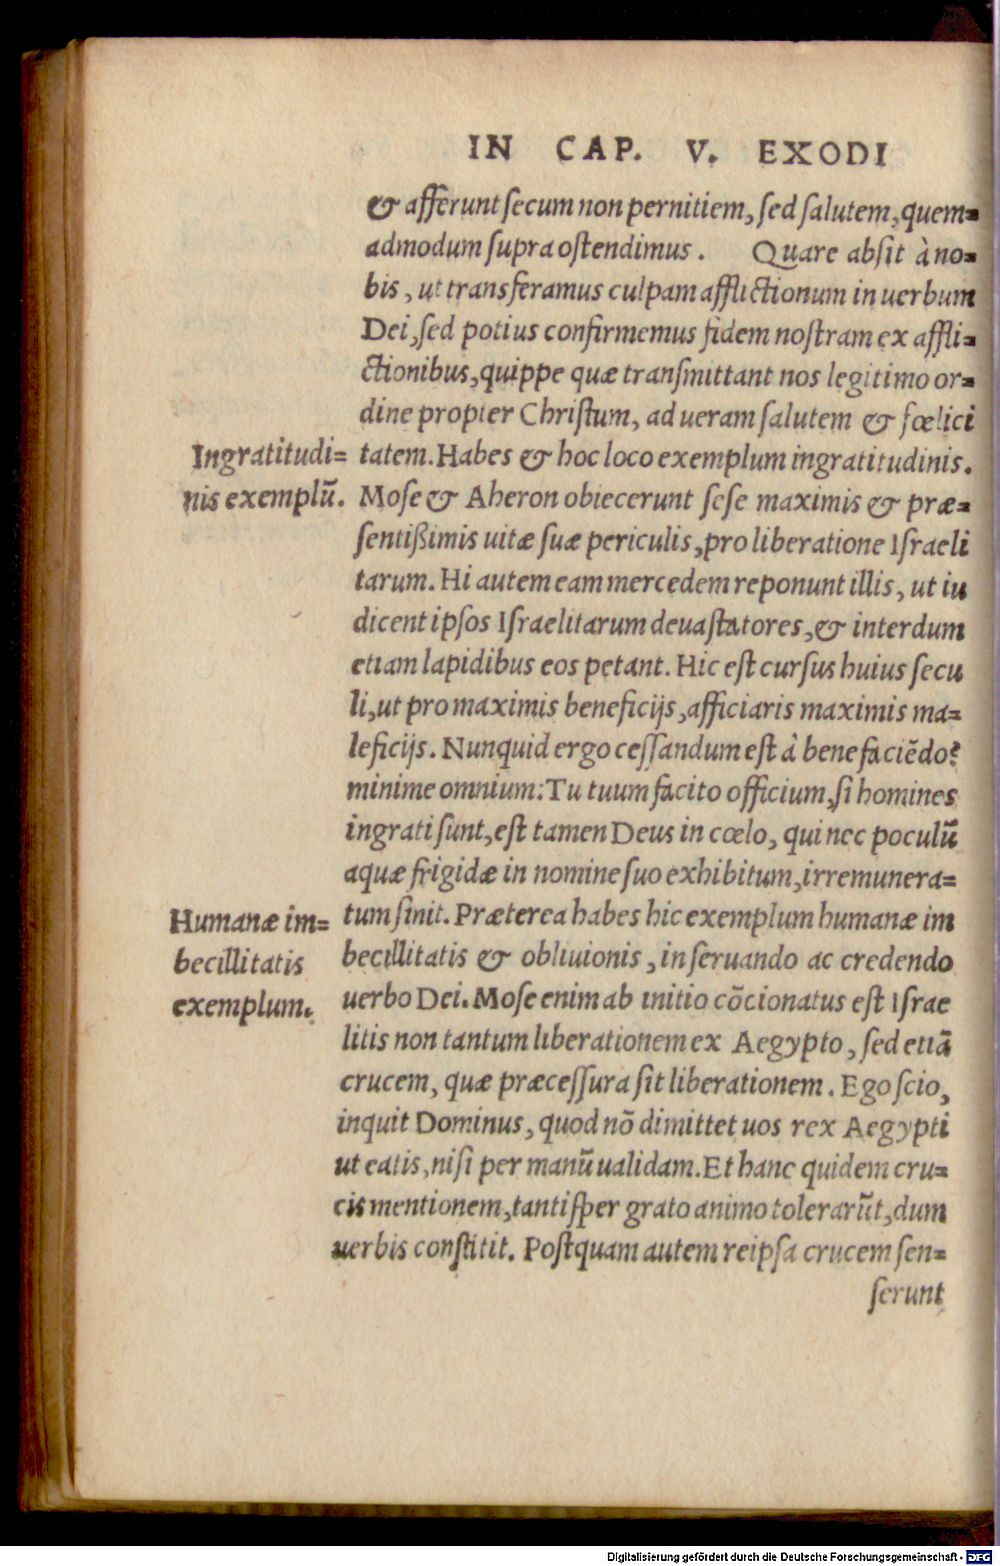 IN CAP. V. EXODI
& afferunt secum non pernitiem, sed salutem, quem=
admodum supra ostendimus. Quare absit à no=
bis, ut transferamus culpam afflictionum in uerbum
Dei, sed potius confirmemus fidem nostram ex affli=
ctionibus, quippe quæ transmittant nos legitimo or=
dine propter Christum, ad ueram salutem & fœlici
Ingratitudi=
nis exemplū.
tatem. Habes & hoc loco exemplum ingratitudinis.
Mose & Aheron obiecerunt sese maximis & præ=
sentißimis uitæ suæ periculis, pro liberatione Israeli
tarum. Hi autem eam mercedem reponunt illis, ut iu
dicent ipsos Israelitarum deuastatores, & interdum
etiam lapidibus eos petant. Hic est cursus huius secu
li, ut pro maximis beneficijs, afficiaris maximis ma=
leficijs. Nunquid ergo cessandum est à benefaciēdo?
minime omnium: Tu tuum facito officium, si homines
ingrati sunt, est tamen Deus in cœlo, qui nec poculū
aquæ frigidæ in nomine suo exhibitum, irremunera=
Humanæ im=
becillitatis
exemplum.
tum sinit. Præterea habes hic exemplum humanæ im
becillitatis & obliuionis, in seruando ac credendo
uerbo Dei. Mose enim ab initio cōcionatus est Israe
litis non tantum liberationem ex Aegypto, sed etiā
crucem, quæ præcessura sit liberationem. Ego scio,
inquit Dominus, quod nō dimittet uos rex Aegypti
ut eatis, nisi per manū ualidam. Et hanc quidem cru=
cis mentionem, tantisper grato animo tolerarūt, dum
uerbis constitit. Postquam autem reipsa crucem sen=
serunt
Digitalisierung gefördert durch die Deutsche Forschungsgemeinschaft - DFG